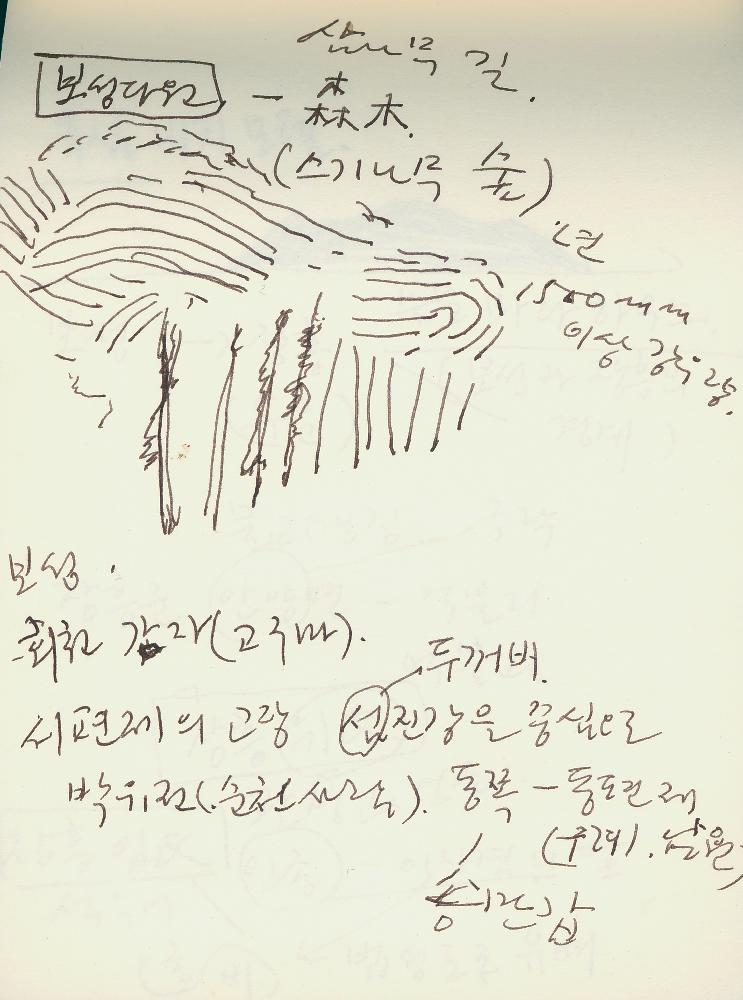 삼나무 길.
보성다원 - 森木.
(스기나무 숲)
년
1500mm
이상 강우량.
보성.
회천 감자(고구마).
두꺼비.
서편제의 고랑 섬진강을 중심으로
박유전(순천사람). 동쪽 - 동편제
(구례, 남원)
송만갑